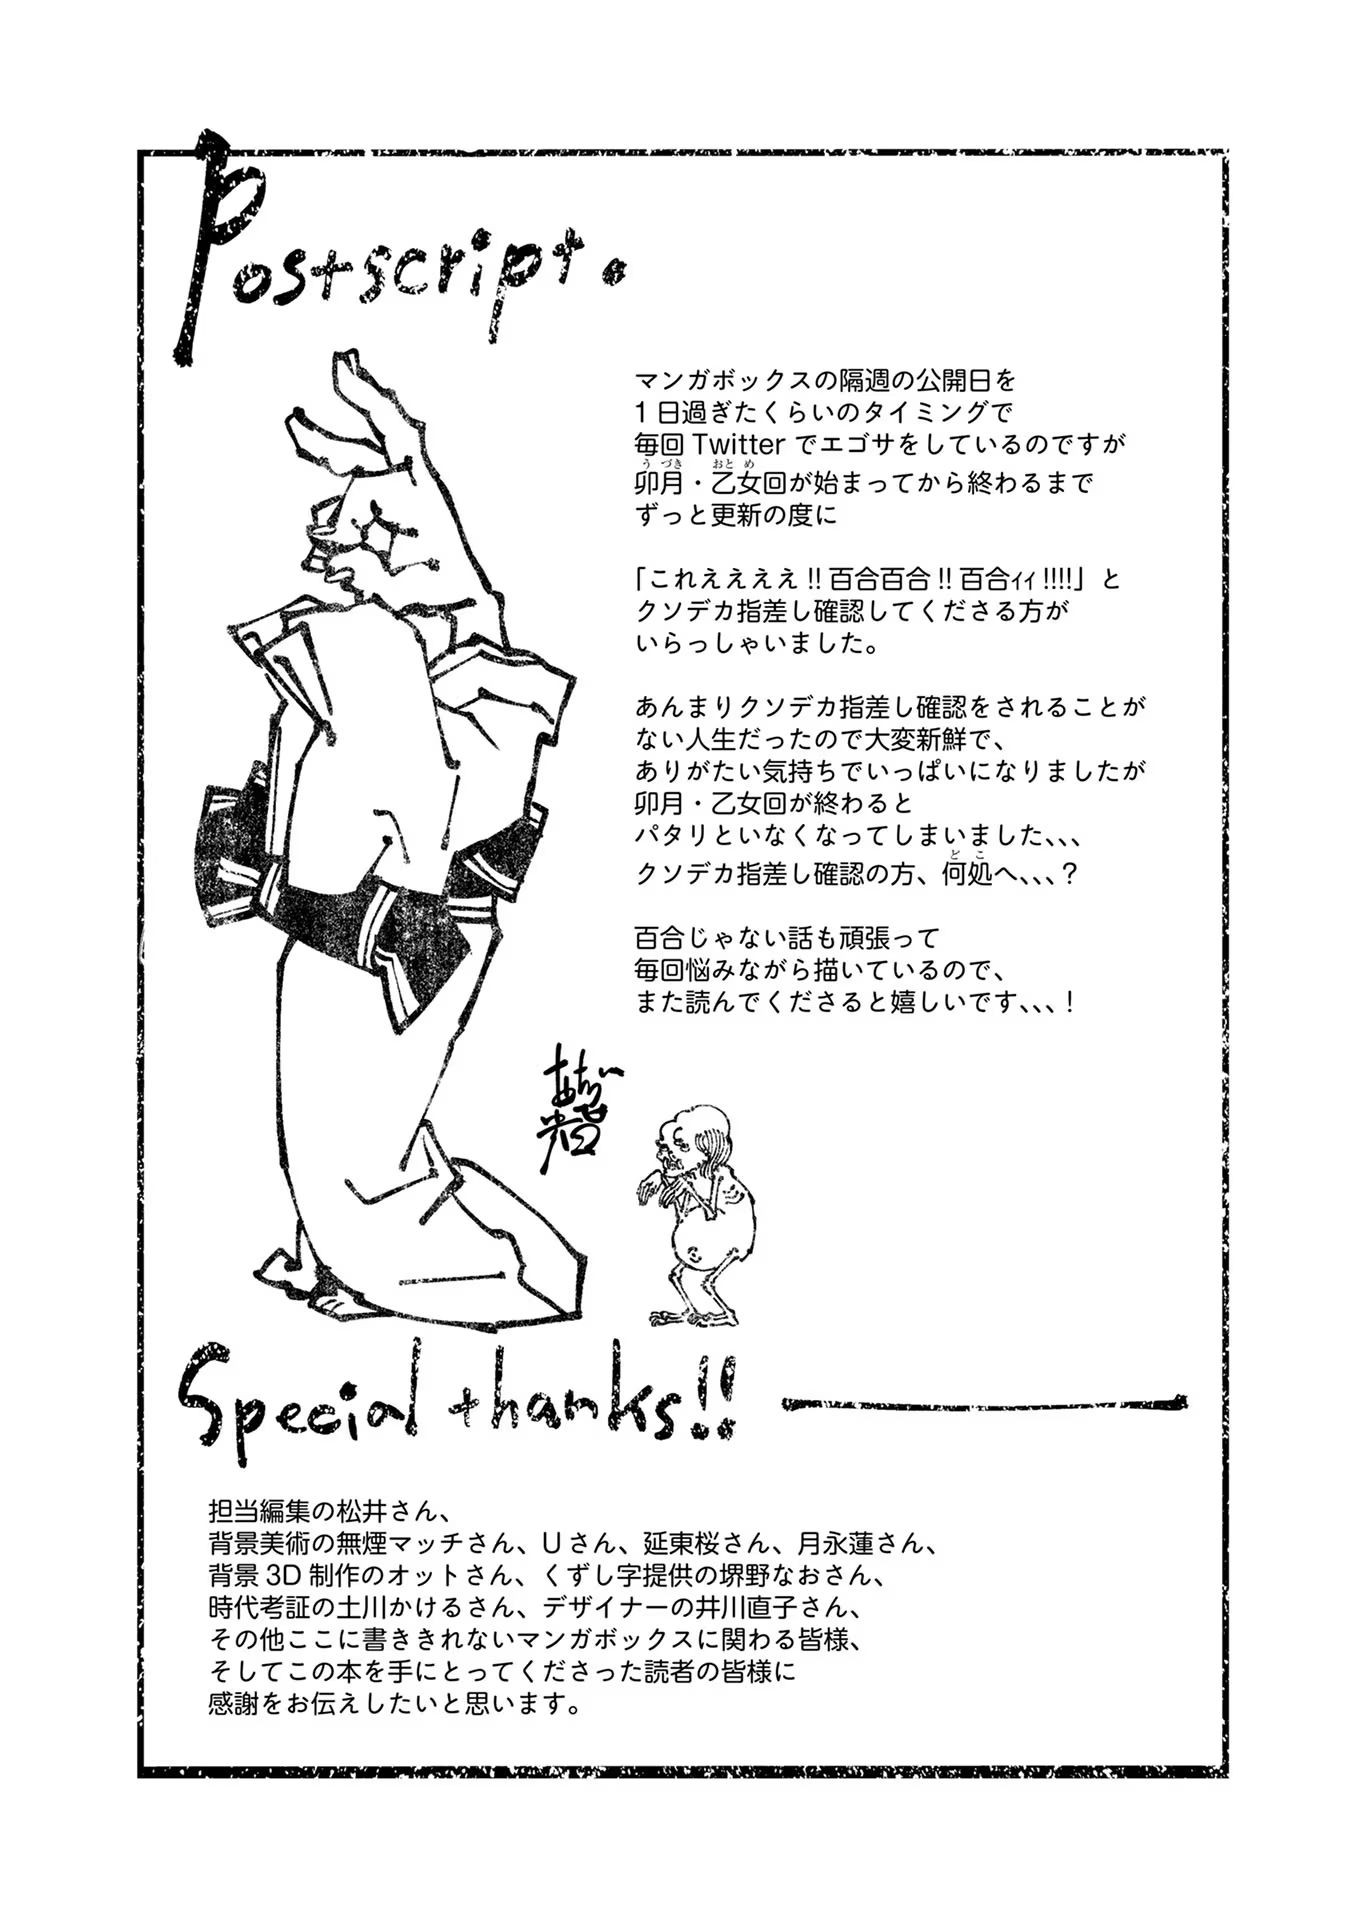 Postscript.
マンガボックスの隔週の公開日を
1日過ぎたくらいのタイミングで
毎回Twitterでエゴサをしているのですが
うづき おとめ
卯月・乙女回が始まってから終わるまで
ずっと更新の度に
「これええええ!!百合百合!!百合ィィ!!!!」と
クソデカ指差し確認してくださる方が
いらっしゃいました。
あんまりクソデカ指差し確認をされることが
ない人生だったので大変新鮮で、
ありがたい気持ちでいっぱいになりましたが
卯月・乙女回が終わると
パタリといなくなってしまいました、、、
どこ
クソデカ指差し確認の方、何処へ、、、?
百合じゃない話も頑張って
毎回悩みながら描いているので、
また読んでくださると嬉しいです、、、!
Special thanks!!
担当編集の松井さん、
背景美術の無煙マッチさん、Uさん、延東桜さん、月永蓮さん、
背景3D制作のオットさん、くずし字提供の堺野なおさん、
時代考証の土川かけるさん、デザイナーの井川直子さん、
その他ここに書ききれないマンガボックスに関わる皆様、
そしてこの本を手にとってくださった読者の皆様に
感謝をお伝えしたいと思います。